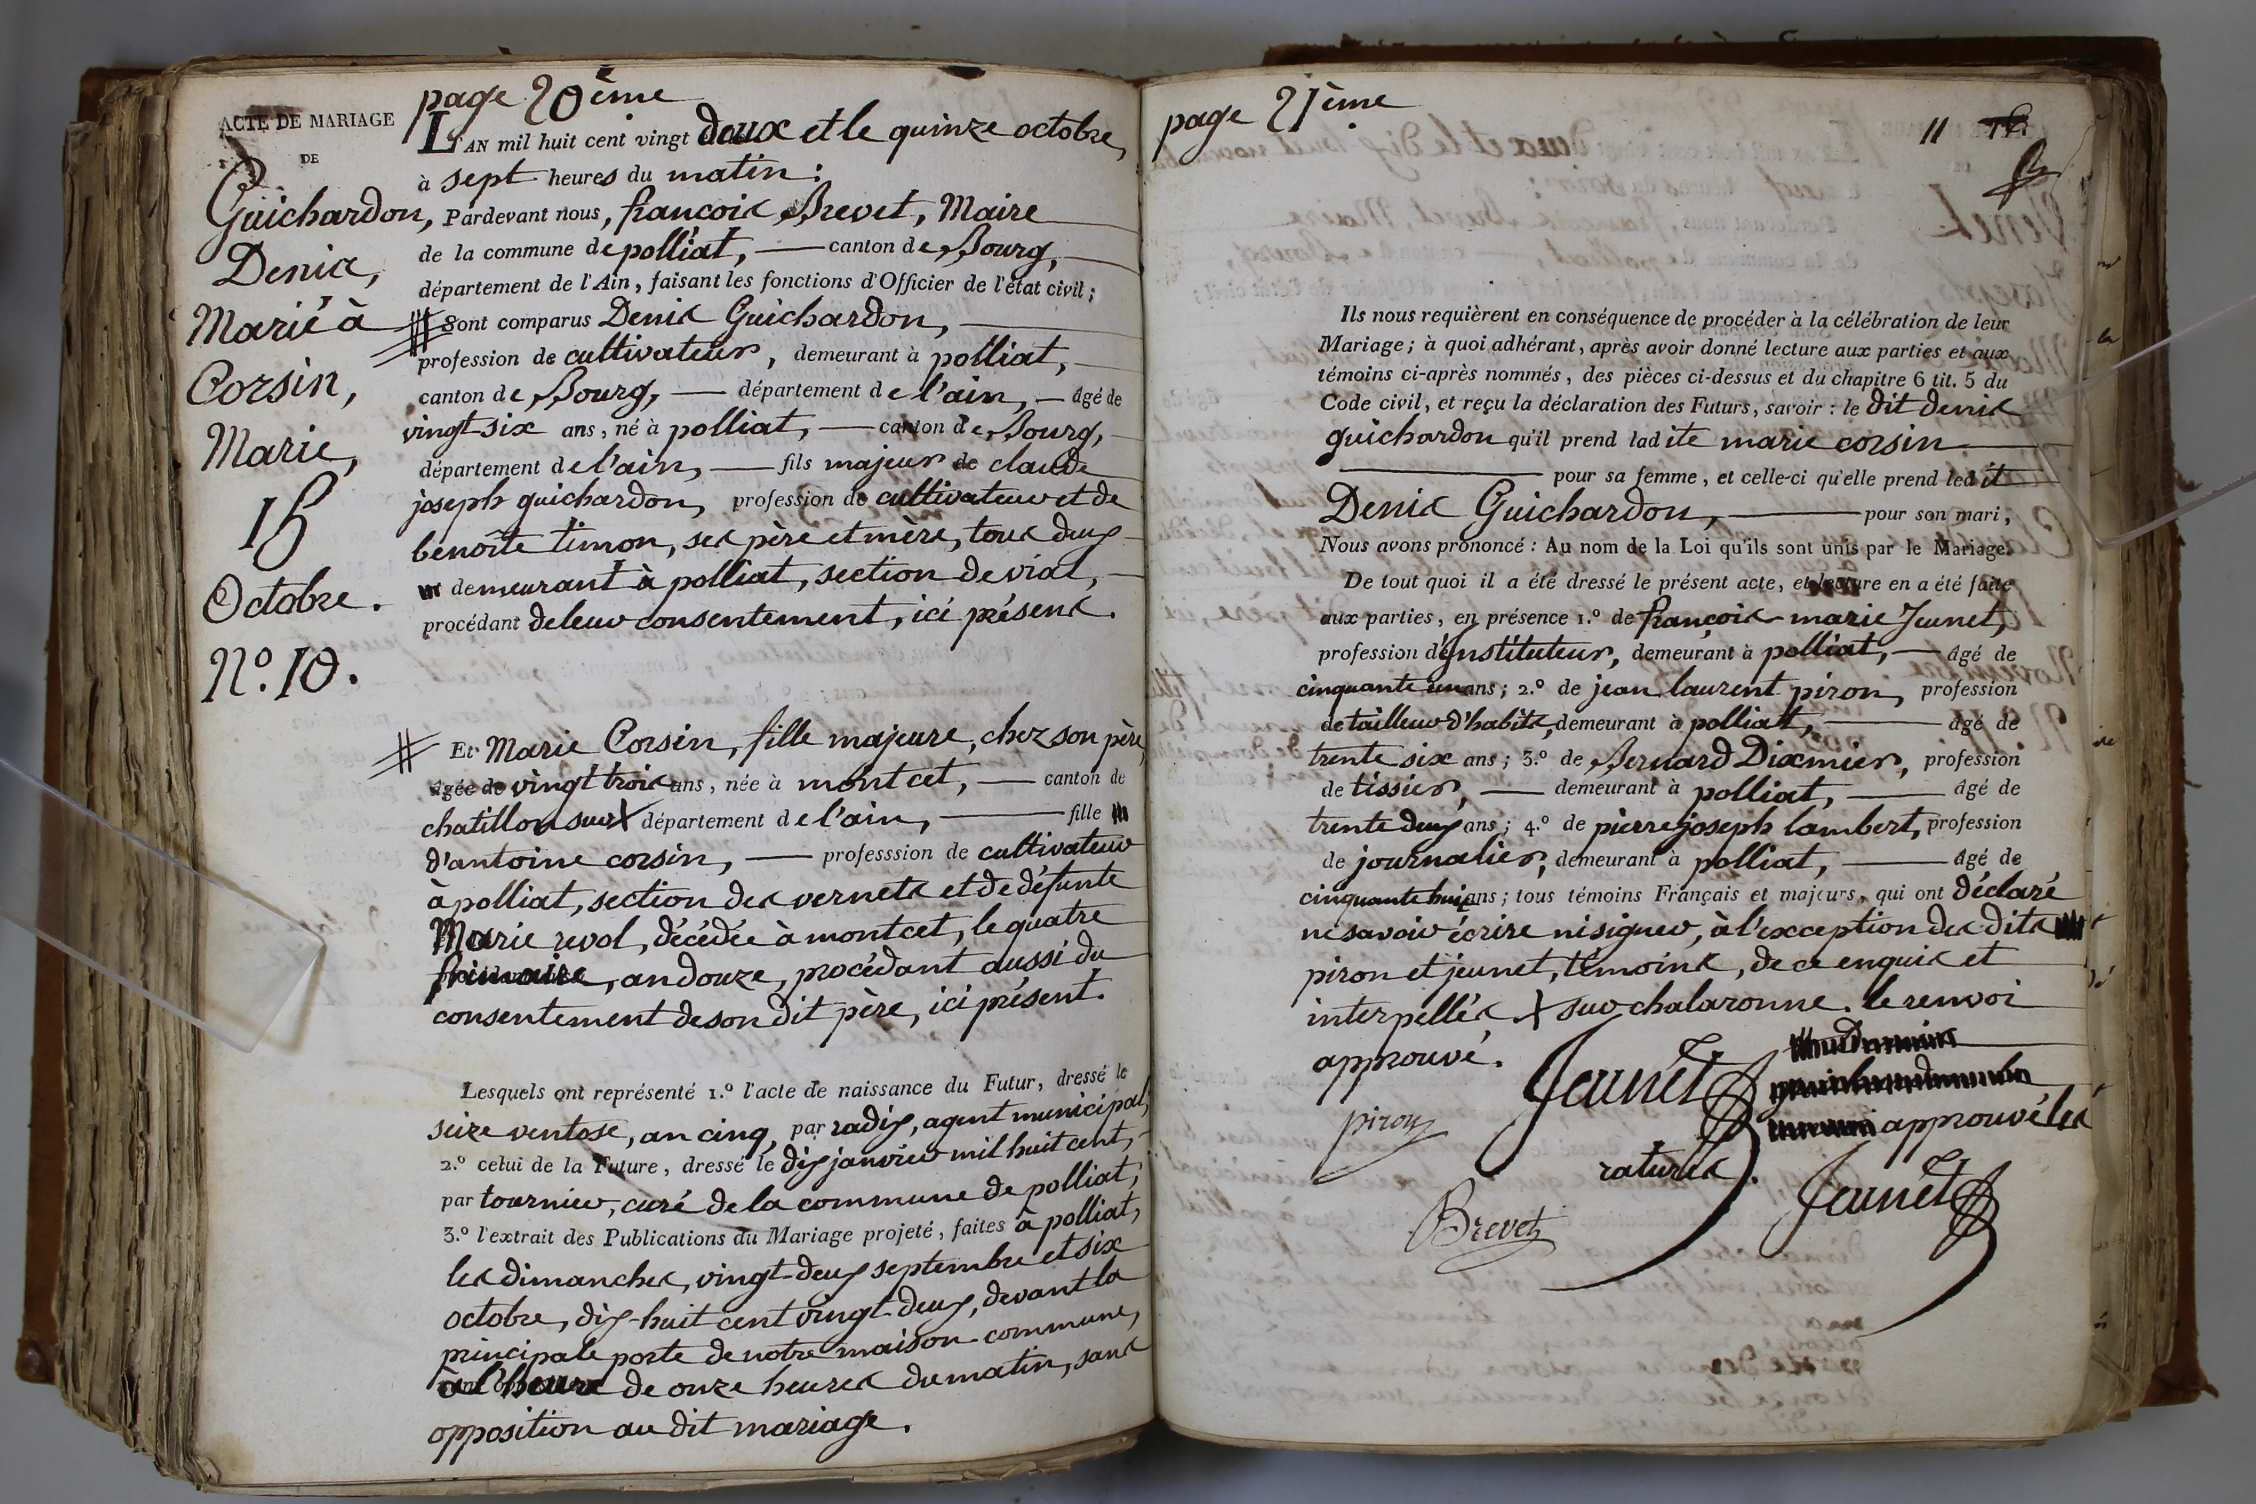 page 20ème
ACTE DE MARIAGE
DE
Guichardon,
Denis,
Marié à
Corsin,
Marie,
15
Octobre.
N.º 10.
L'AN mil huit cent vingt deux et le quinze octobre,
à sept heures du matin:
Pardevant nous, françois Brevet, Maire
de la commune de polliat, canton de Bourg,
département de l'Ain, faisant les fonctions d'Officier de l'état civil;
Sont comparus Denis Guichardon,
profession de cultivateur, demeurant à polliat,
canton de Bourg, département de l'ain, âgé de
vingt-six ans, né à polliat, canton de Bourg,
département de l'ain, fils majeur de claude
joseph guichardon, profession de cultivateur et de
benoîte timon, ses père et mère, tous deux
demeurant à polliat, section de viat,
procédant de leur consentement, ici présens.
Et Marie Corsin, fille majeure, chez son père,
âgée de vingt trois ans, née à montcet, canton de
chatillon sur X département de l'ain, fille
d'antoine corsin, professsion de cultivateur
à polliat, section des vernets et de défunte
Marie revol, décédée à montcet, le quatre
frimaire, an douze, procédant aussi du
consentement de son dit père, ici présent.
Lesquels ont représenté 1.º l'acte de naissance du Futur, dressé le
seize ventose, an cinq, par radix, agent municipal;
2.º celui de la Future, dressé le dix janvier mil huit cent,
par tournier, curé de la commune de polliat;
3.º l'extrait des Publications du Mariage projeté, faites à polliat,
les dimanches, vingt-deux septembre et six
octobre, dix-huit cent vingt-deux, devant la
principale porte de notre maison commune,
à l'heure de onze heures du matin, sans
opposition au dit mariage.
page 21ème
11
Ils nous requièrent en conséquence de procéder à la célébration de leur
Mariage; à quoi adhérant, après avoir donné lecture aux parties et aux
témoins ci-après nommés, des pièces ci-dessus et du chapitre 6 tit. 5 du
Code civil, et reçu la déclaration des Futurs, savoir: le dit denis
guichardon qu'il prend ladite marie corsin
pour sa femme, et celle-ci qu'elle prend ledit
Denis Guichardon, pour son mari,
Nous avons prononcé: Au nom de la Loi qu'ils sont unis par le Mariage.
De tout quoi il a été dressé le présent acte, et lecture en a été faite
aux parties, en présence 1.º de françois-marie Jeunet,
profession d'instituteur, demeurant à polliat, âgé de
cinquante un ans; 2.º de jean laurent piron, profession
de tailleur d'habits, demeurant à polliat, âgé de
trente six ans; 3.º de Bernard Dixmier, profession
de tissier, demeurant à polliat, âgé de
trente deux ans; 4.º de pierre joseph lambert, profession
de journalier, demeurant à polliat, âgé de
cinquante huit ans; tous témoins Français et majeurs, qui ont déclaré
ne savoir écrire ni signer, à l'exception des dits
piron et jeunet, témoins, de ce enquis et
interpellés X sur chalaronne. le renvoi
approuvé.
Jeunet
piron
approuvé les
ratures.
Brevet
Jeunet